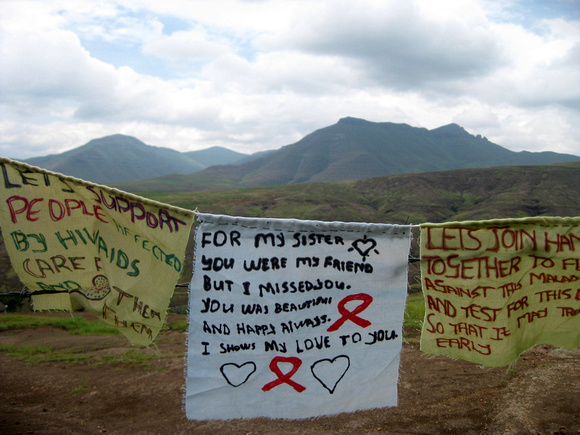 LETS SUPPORT
PEOPLE AFFECTED
BY HIV AIDS
CARE
THEM
THEM
FOR MY SISTER
YOU WERE MY FRIEND
BUT I MISSED YOU.
YOU WAS BEAUTIFUL
AND HAPPY ALWAYS.
I SHOWS MY LOVE TO YOU
LETS JOIN HAN
TOGETHER TO FI
AGAINST THIS MALAD
AND TEST FOR THIS
SO THAT IT MAY TR
EARLY